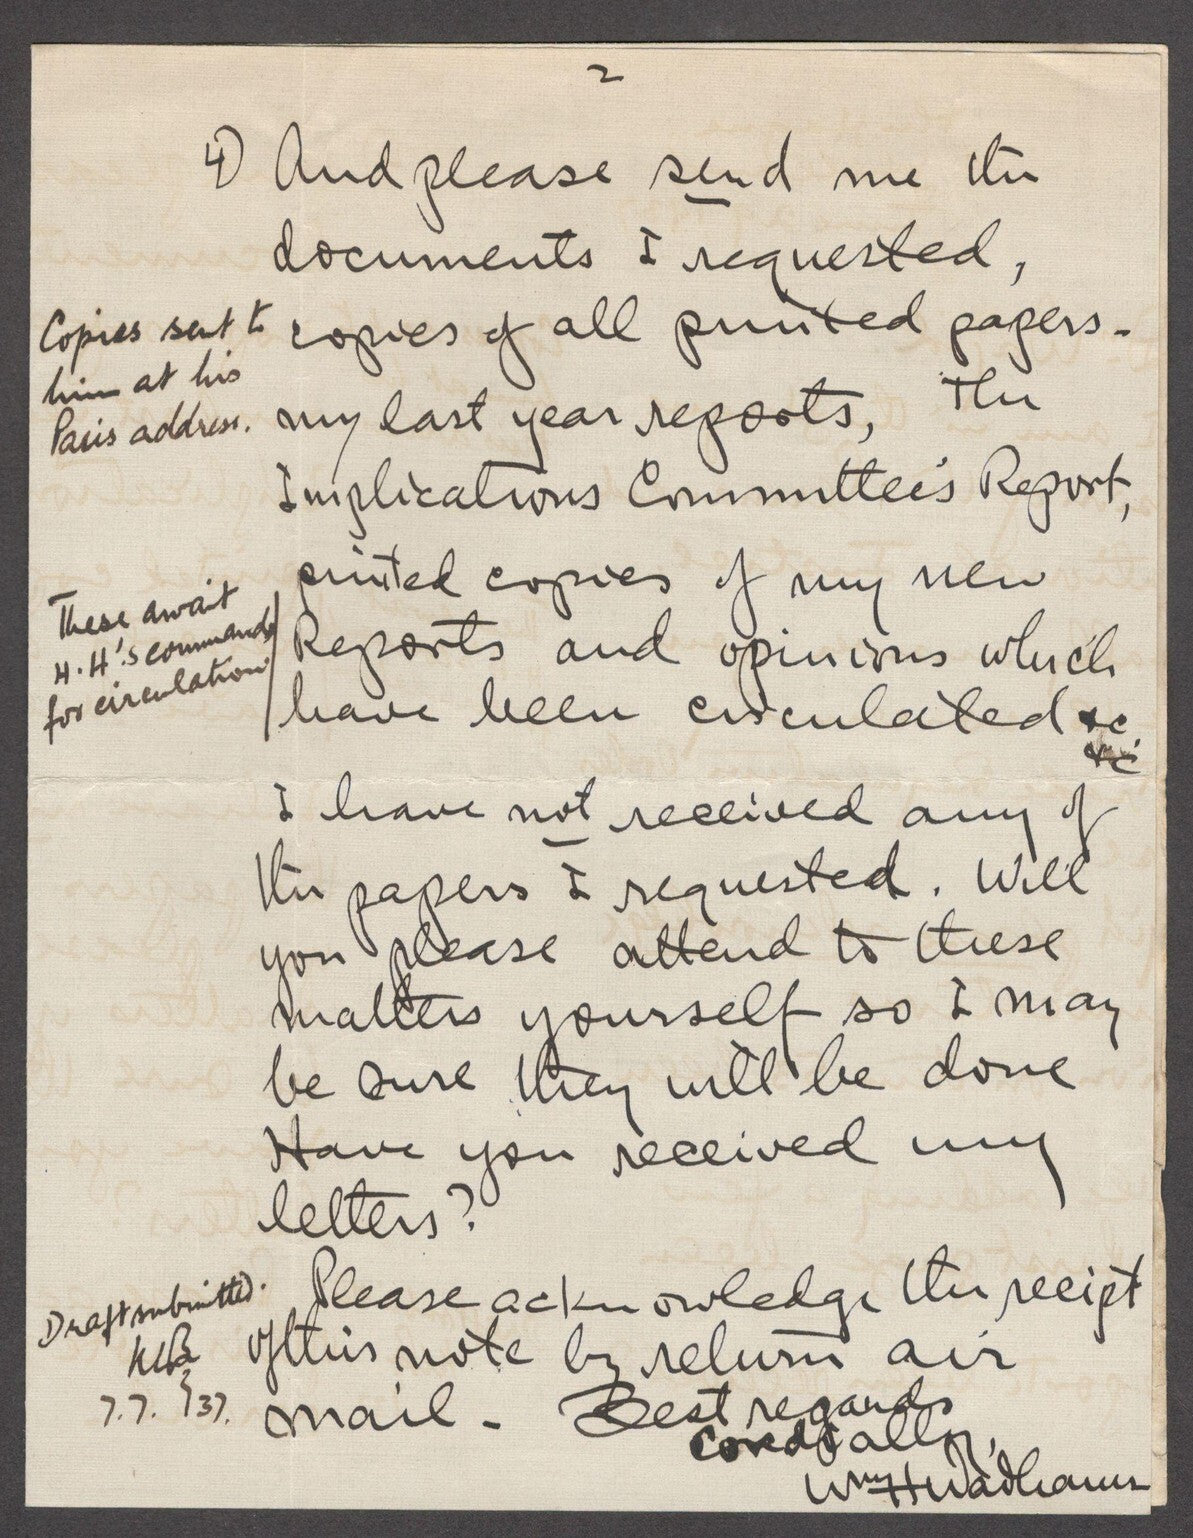 2
4) And please send me the
documents I requested,
copies of all printed papers -
my last year reports, The
Implications Committee's Report,
printed copies of my new
Reports and opinions which
have been circulated &c.
&c
I have not received any of
the papers I requested. Will
you please attend to these
matters yourself so I may
be sure they will be done
Have you received my
letters?
Please acknowledge the receipt
of this note by return air
mail - Best regards
Cordially,
Wm H Wadhams
Copies sent to
him at his
Paris address.
These await
H.H's commands
for circulation
Draft submitted.
7.7.37.